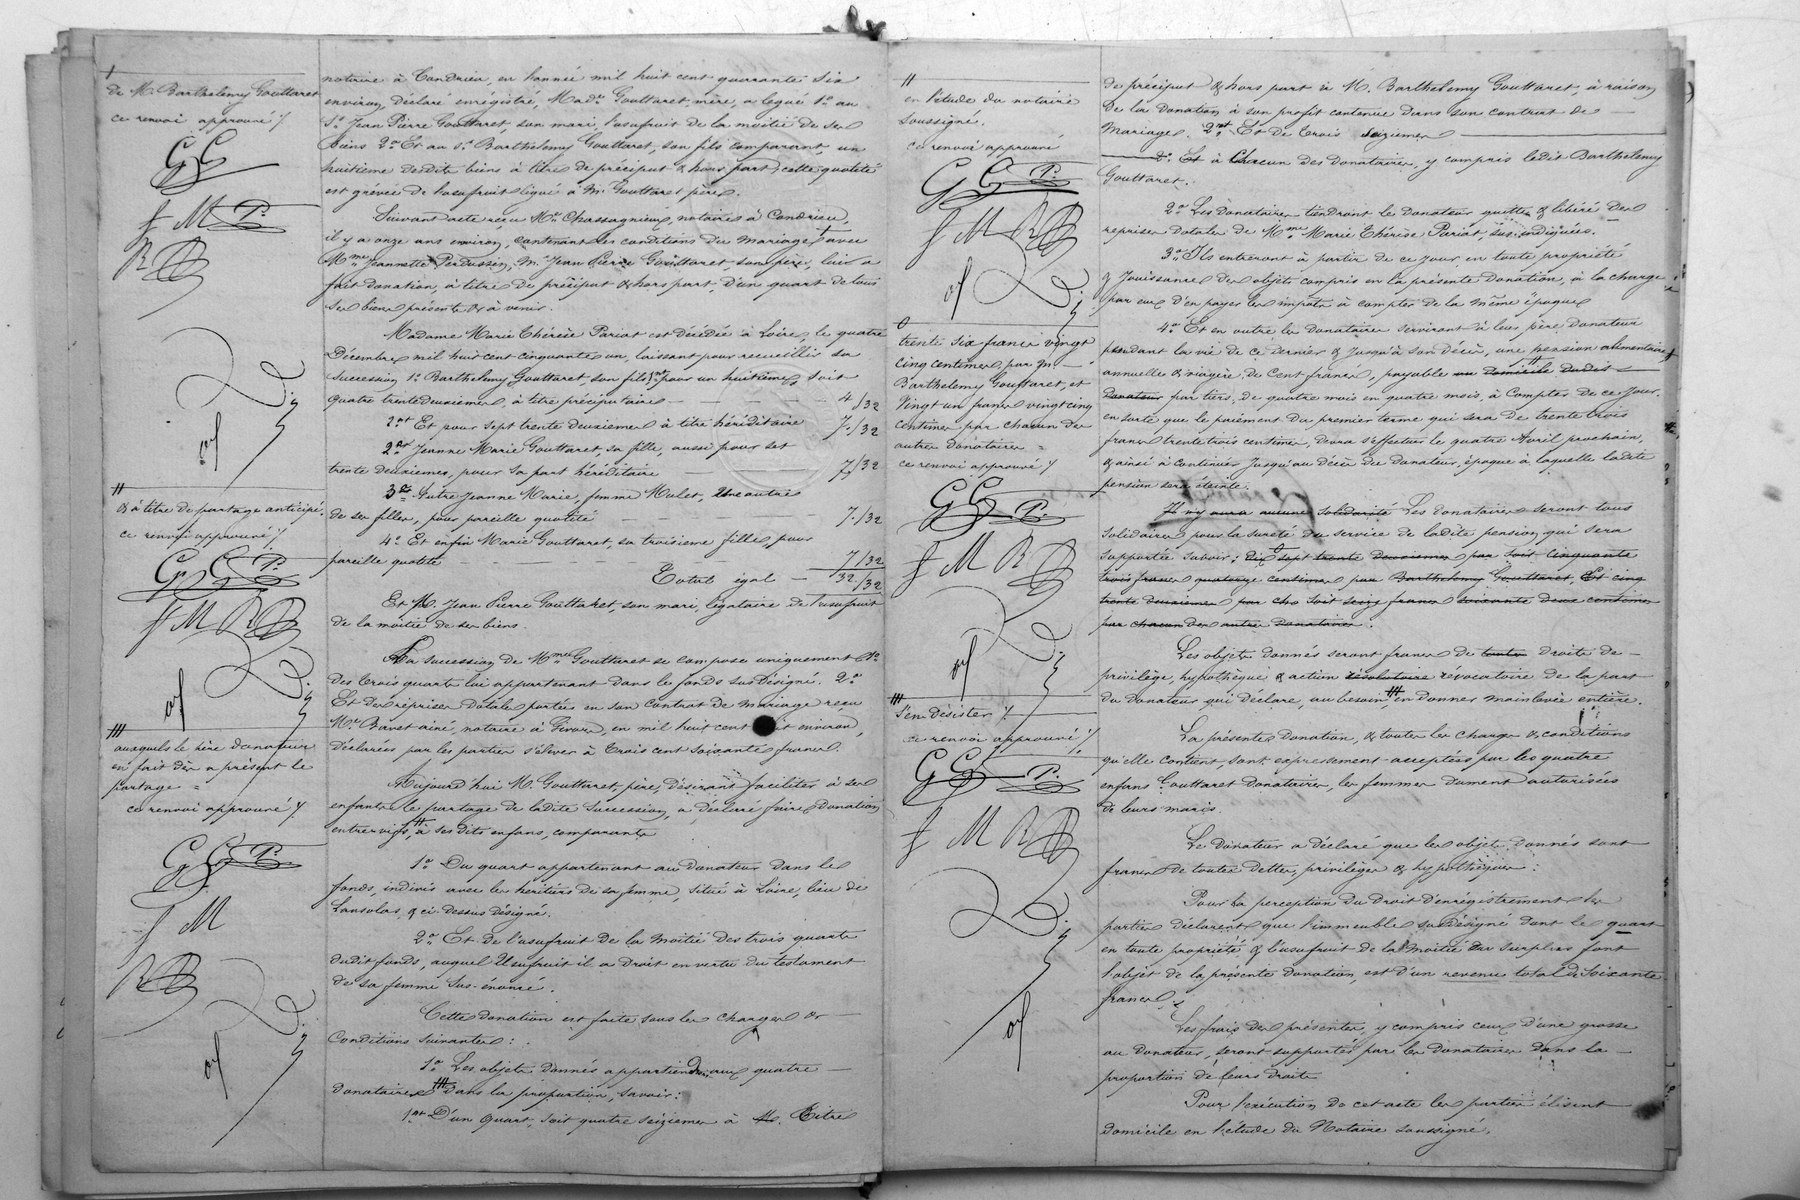 de M. Barthelemy Gouttaret
ce renvoi approuvé /.
G G
f M P.
R B
//
& à titre de partage anticipé.
ce renvoi approuvé /.
G G P.
f M R B
///
auxquels le père donateur
en fait dès à présent le
partage =
ce renvoi approuvé /.
G G P.
f M
R B
notaire à Condrieu, en l'année mil huit cent quarante six
environ, déclaré enrégistré, Made Gouttaret mère, a legué 1o au
Sr Jean Pierre Gouttaret, son mari, l'usufruit de la moitié de ses
biens 2o Et au sr Barthélemy Gouttaret, son fils comparant, un
huitième desdits biens à titre de préciput & hors part, cette quotité
est grevée de l'usufruit légué à Mr Gouttaret père.
Suivant acte reçu Me Chassagnieux, notaire à Condrieu,
il y a onze ans environ, contenant les conditions du mariage avec
Mme Jeannette Perdussin, M. Jean Pierre Gouttaret, son père, lui a
fait donation, à titre de préciput & hors part, d'un quart de tous
ses biens présents & à venir.
Madame Marie Thérèse Pariat est décédée à Loire, le quatre
Décembre mil huit cent cinquante un, laissant pour recueillir sa
succession 1o Barthelemy Gouttaret, son fils 1ent pour un huitième, soit
quatre trentedeuxièmes, à titre préciputaire — — — — 4/32
2ent Et pour sept trente deuxièmes à titre héréditaire 7/32
2o Jeanne Marie Gouttaret, sa fille, aussi pour sept
trente deuxièmes, pour sa part héréditaire — — — 7/32
3o Autre Jeanne Marie, femme Malet, une autre
de ses filles, pour pareille quotité — — — 7/32
4o Et enfin Marie Gouttaret, sa troisième fille, pour
pareille quotité — — — — — — 7/32
Total égal — 32/32
Et M. Jean Pierre Gouttaret, son mari, légataire de l'usufruit
de la moitié de ses biens.
La succession de Mme Gouttaret se compose uniquement 1o
des trois quarts lui appartenant dans le fonds sus désigné. 2o
Et des reprises dotales portées en son contrat de mariage reçu
Me Bavet ainé, notaire à Givors, en mil huit cent it environ,
déclarées par les parties s'élever à trois cent soixante francs.
Aujourd'hui M. Gouttaret, père, désirant faciliter à ses
enfants le partage de ladite succession, a déclaré faire donation
entrevifs, // à ses dits enfans, comparants
1o Du quart appartenant au donateur dans le
fonds, indivis avec les héritiers de sa femme, situé à Loire, lieu de
Lansolas, & ci-dessus désigné.
2o Et de l'usufruit de la moitié des trois quarts
dudit fonds, auquel usufruit il a droit en vertu du testament
de sa femme sus-énoncé.
Cette donation est faite sous les charges &
conditions suivantes :
1o Les objets donnés appartiendront aux quatre
donataires /// dans la proportion, savoir :
1ent D'un quart, soit quatre seizièmes à titre
//
en l'étude du notaire
soussigné.
ce renvoi approuvé
G G P.
f M R B
trente six francs vingt
cinq centimes, par M.
Barthelemy Gouttaret, et
Vingt un francs vingt cinq
centimes par chacun des
autres donataires =
ce renvoi approuvé /.
G G P.
f M R B
///
s'en désister /.
ce renvoi approuvé /.
G G P.
f M R B
de préciput & hors part à M. Barthelemy Gouttaret, à raison
de la donation à son profit contenue dans son contrat de
mariage. 2ent Et de trois seizièmes
à chacun des donataires, y compris ledit Barthélemy
Gouttaret.
2o Les donataires tiendront le donateur quitte & libéré des
reprises dotales de Mme Marie Thérèse Pariat, sus-indiquées.
3o Ils entreront à partir de ce jour en toute propriété
& jouissance des objets compris en la présente donation, à la charge
par eux d'en payer les impôts à compter de la même époque
4o Et en outre les donataires serviront à leur père donateur
pendant la vie de ce dernier & jusqu'à son décès, une pension alimentaire
annuelle & viagère, de cent francs, payable au domicile dudit
donateur par tiers, de quatre mois en quatre mois, à compter de ce jour.
en sorte que le paiement du premier terme qui sera de trente trois
francs trente trois centimes, devra s'effectuer le quatre Avril prochain,
& ainsi à continuer jusqu'au décès du donateur, époque à laquelle ladite
pension sera éteinte.
Il n'y aura aucune solidarité Les donataires seront tous
solidaires pour la sureté du service de ladite pension qui sera
supportée savoir : dix sept trente deuxièmes par soit cinquante
trois francs quatorze centimes par Barthelemy Gouttaret, Et cinq
trente deuxièmes par chs soit seize francs soixante deux centimes
par chacun des autres donataires.
Les objets donnés seront francs de toutes droits de
privilège, hypothèque & action résolutoire révocatoire de la part
du donateur qui déclare, au besoin /// en donner mainlevée entière.
La présente donation, & toutes les charges & conditions
qu'elle contient sont expressément acceptées par les quatre
enfans Gouttaret donataires, les femmes dument autorisées
de leurs maris.
Le donateur a déclaré que les objets donnés sont
francs de toutes dettes, privilèges & hypothèques.
Pour la perception du droit d'enrégistrement les
parties déclarent que l'immeuble susdésigné dont le quart
en toute propriété & l'usufruit de la moitié du surplus font
l'objet de la présente donation, est d'un revenu total de soixante
francs.
Les frais des présentes, y compris ceux d'une grosse
au donateur, seront supportés par les donataires dans la
proportion de leurs droits
Pour l'exécution de cet acte les parties élisent
domicile en l'étude du Notaire soussigné.